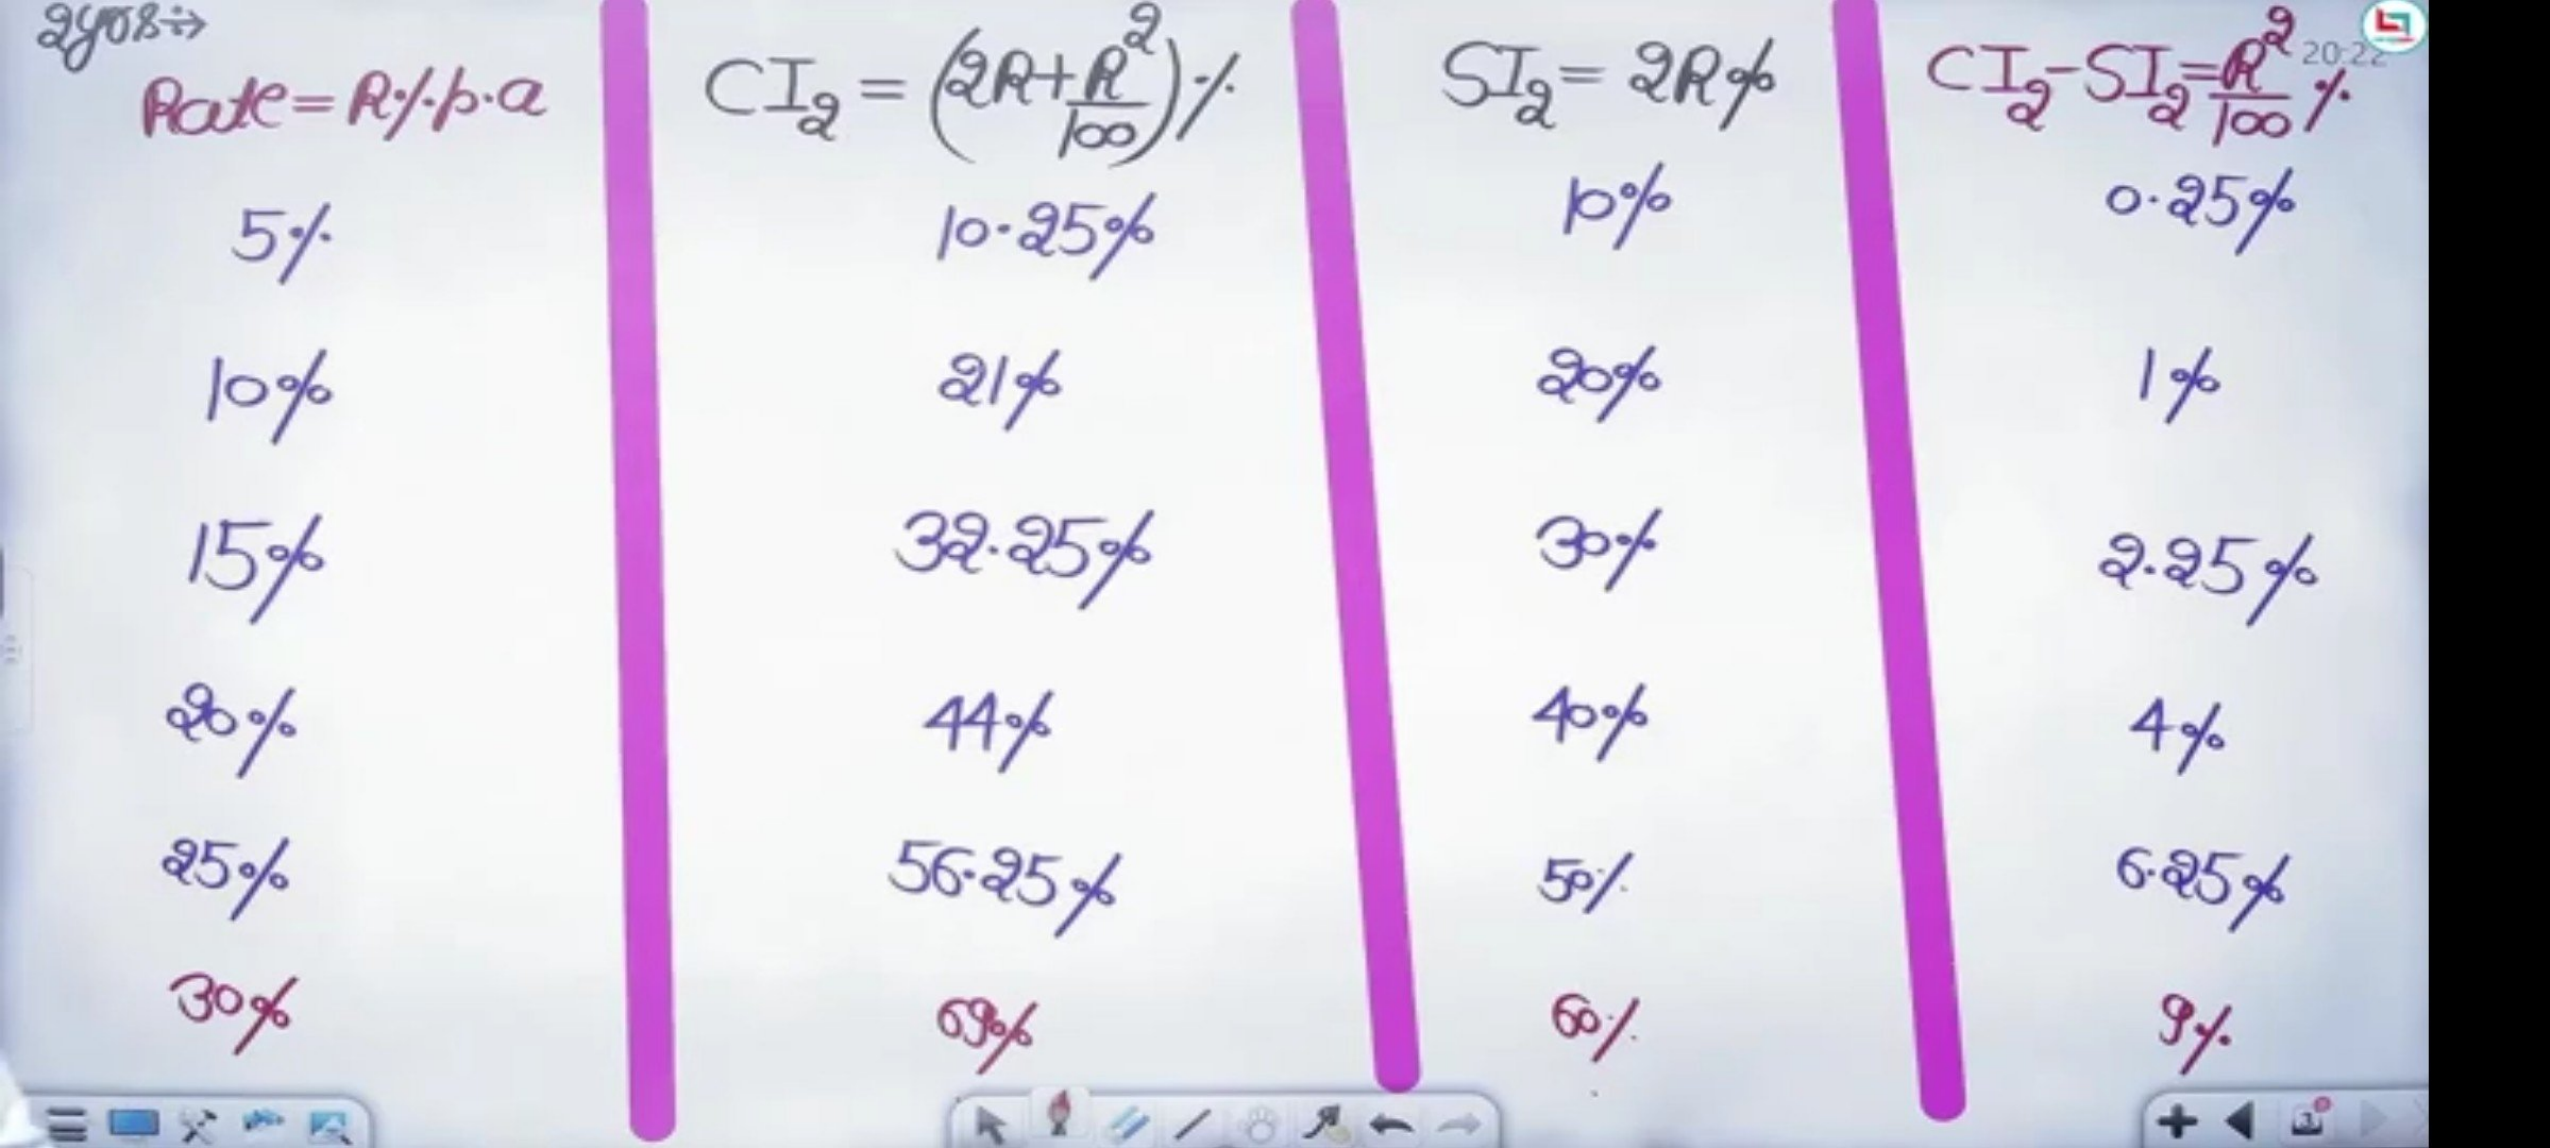 2yrs:→
Rate = R% p.a CI₂ = (2R + R²/100)% SI₂ = 2R% CI₂ - SI₂ = R²/100 %
20:22
5% 10.25% 10% 0.25%
10% 21% 20% 1%
15% 32.25% 30% 2.25%
20% 44% 40% 4%
25% 56.25% 50% 6.25%
30% 69% 60% 9%